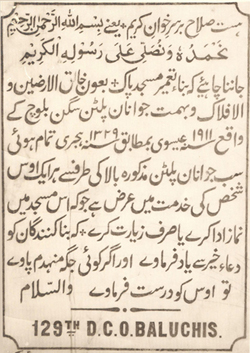 ہست صلاح برسرخوان کریم * یعنے بسم اللہ الرحمن الرحیم
نحمدہ ونصلی علی رسولہ الکریم
جاننا چاہئے کہ بناء تعمیر مسجد پاک * بعون خالق الارضین و
الافلاک و ہمت جوانان پلٹن سگن بلوچ کے
واقع ۱۹۱۱ سنہ عیسوی بمطابق سنہ ۱۳۲۹ ہجری تمام ہوئی
سب جوانان پلٹن مذکورہ بالا کی طرف سے ہر ایک اوس
شخص کی خدمت میں عرض ہے جو کہ اس مسجد میں
نماز ادا کرے یا صرف زیارت کرے * کہ بنا کنندگان کو
دعاء خیر سے یاد فرماوے اور اگر کوئی جگہ منہدم پاوے
تو اوس کو درست فرماوے والسلام
129TH D.C.O. BALUCHIS.